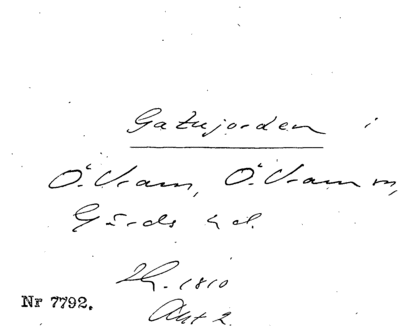 Gatujorden i
Ö. Vram, Ö. Vram sn,
Gärds hd.
Lh. 1810
Akt 2.
Nr 7792.